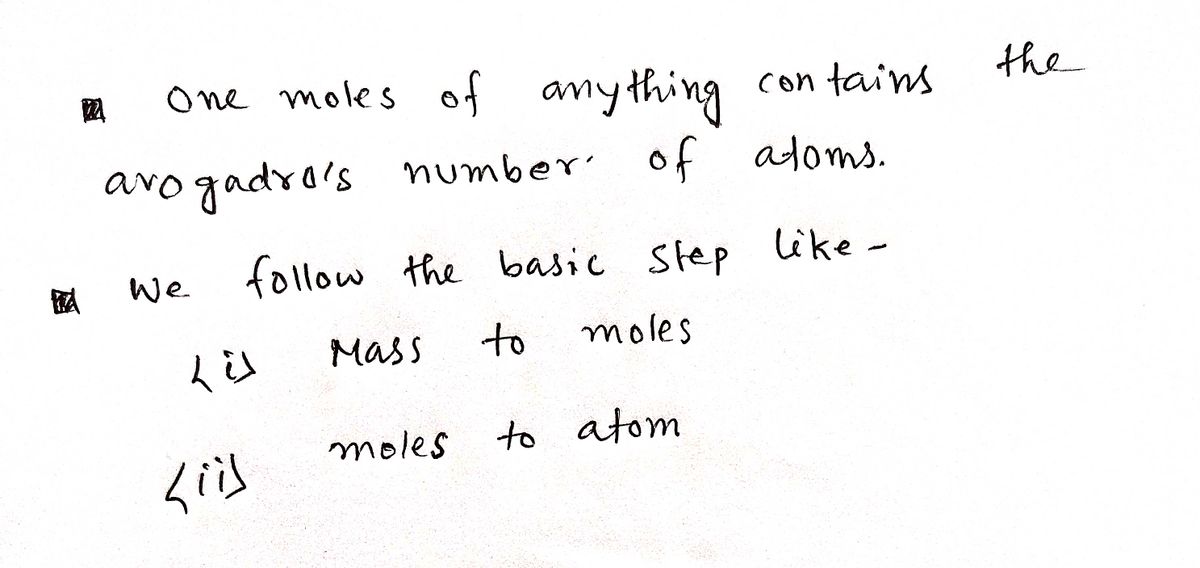 One moles of anything contains the
avogadro's number of atoms.
We follow the basic step like -
<i> Mass to moles
<ii> moles to atom